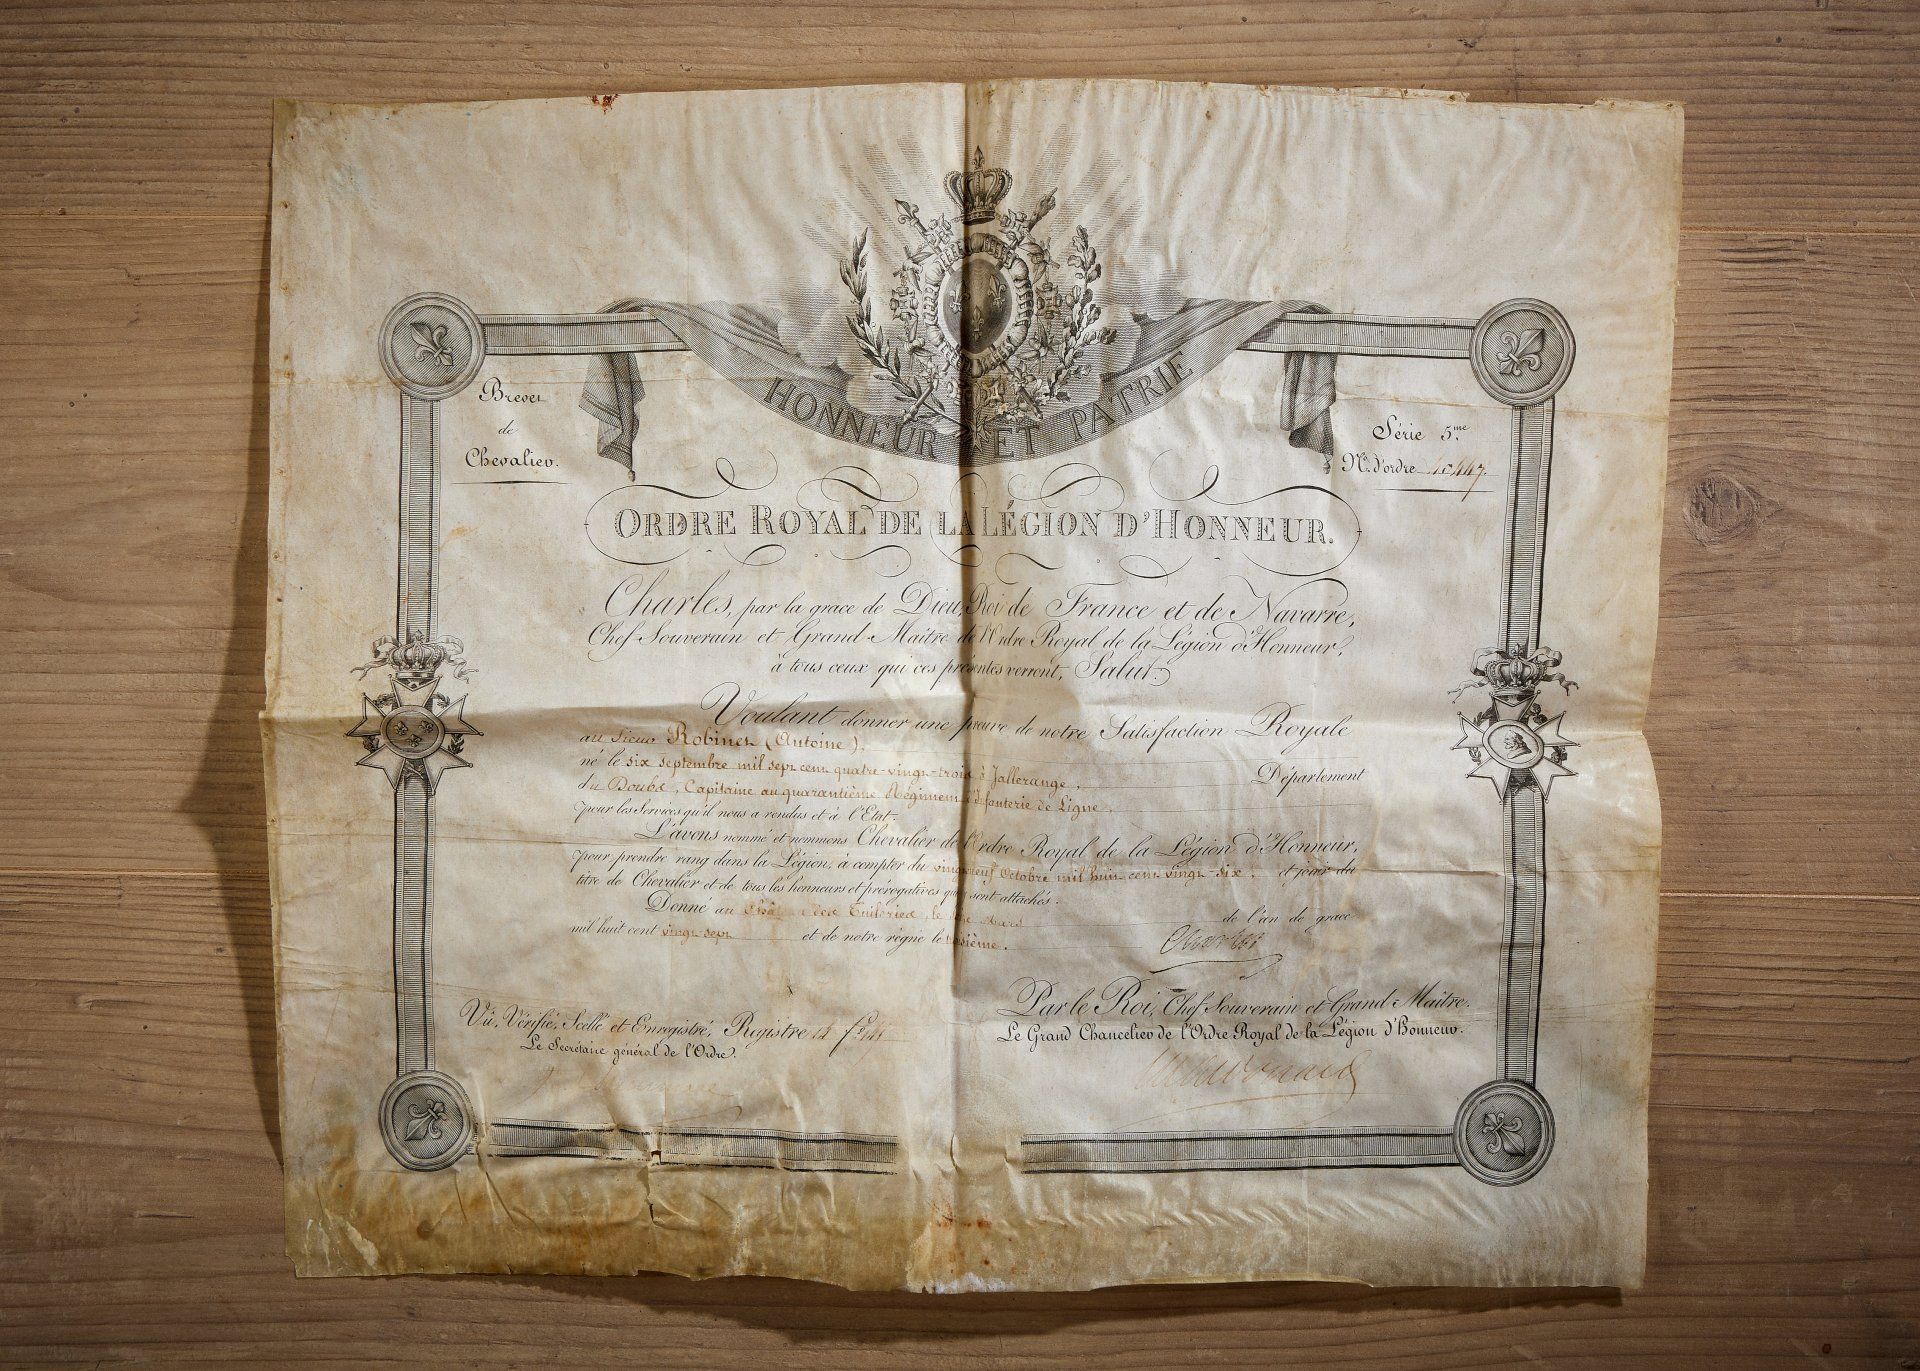 HONNEUR ET PATRIE
Brevet
de
Chevalier.
Série 5.me
N.o d'ordre
ORDRE ROYAL DE LA LÉGION D'HONNEUR.
Charles, par la grace de Dieu, Roi de France et de Navarre,
Chef Souverain et Grand-Maître de l'Ordre Royal de la Légion d'Honneur,
à tous ceux qui ces présentes verront, Salut.
Voulant donner une preuve de notre Satisfaction Royale
au Sieur Robinet (Antoine),
né le six septembre mil sept cent quatre-vingt-trois à Jallerange, Département
du Doubs, Capitaine au quarantième Régiment d'Infanterie de Ligne,
pour les Services qu'il nous a rendus et à l'Etat.
L'avons nommé et nommons Chevalier de l'Ordre Royal de la Légion d'Honneur,
pour prendre rang dans la Légion, à compter du vingt neuf Octobre mil huit cent vingt-six, et jouir du
titre de Chevalier et de tous les honneurs et prérogatives qui y sont attachés.
Donné au Château des Tuileries, le Mars de l'an de grace
mil huit cent vingt-sept et de notre règne le troisième.
Charles
Vu, Vérifié, Scellé et Enregistré, Registre f.o
Le Secrétaire général de l'Ordre.
Par le Roi, Chef Souverain et Grand-Maître.
Le Grand Chancelier de l'Ordre Royal de la Légion d'Honneur.
Macdonald